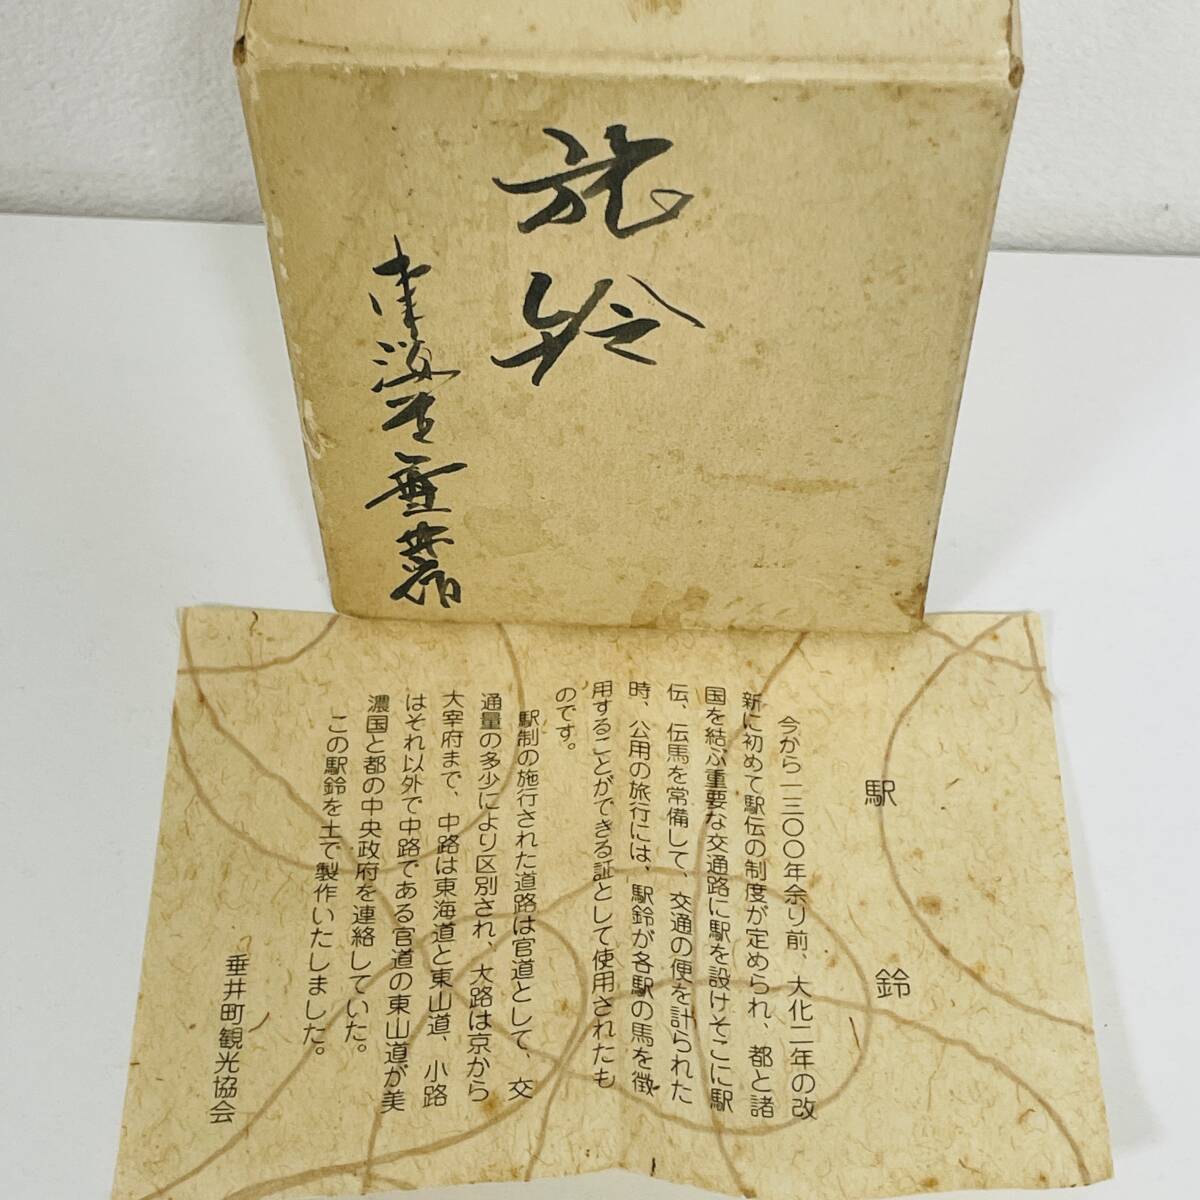 旅鈴
駅鈴
今から一三〇〇年余り前、大化二年の改
新に初めて駅伝の制度が定められ、都と諸
国を結ぶ重要な交通路に駅を設けそこに駅
伝、伝馬を常備して、交通の便を計られた
時、公用の旅行には、駅鈴が各駅の馬を徴
用することができる証として使用されたも
のです。
駅制の施行された道路は官道として、交
通量の多少により区別され、大路は京から
大宰府まで、中路は東海道と東山道、小路
はそれ以外で中路である官道の東山道が美
濃国と都の中央政府を連絡していた。
この駅鈴を土で製作いたしました。
垂井町観光協会